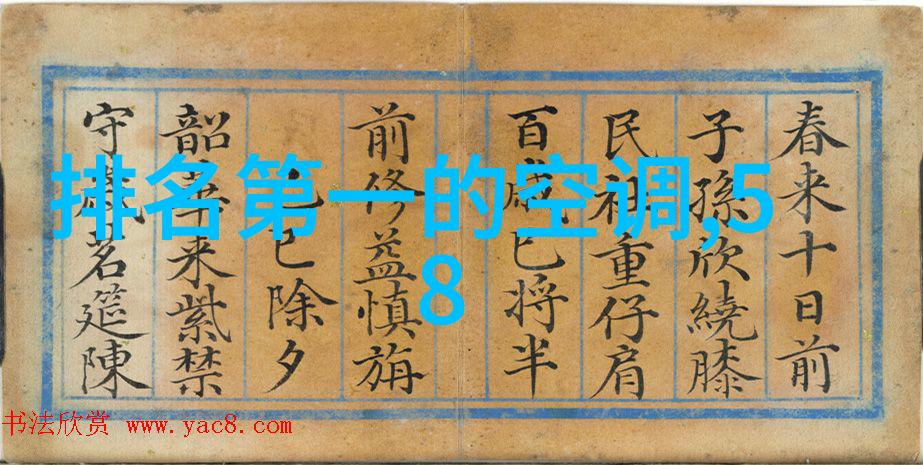 排名第一的空调,5
8
春来十日前
子孫欣繞膝
民祖重仔肩
百歲已将半
前修益慎旃
巳除夕
韶華来紫禁
守歲茗筵陳
书法欣赏 www.yac8.com